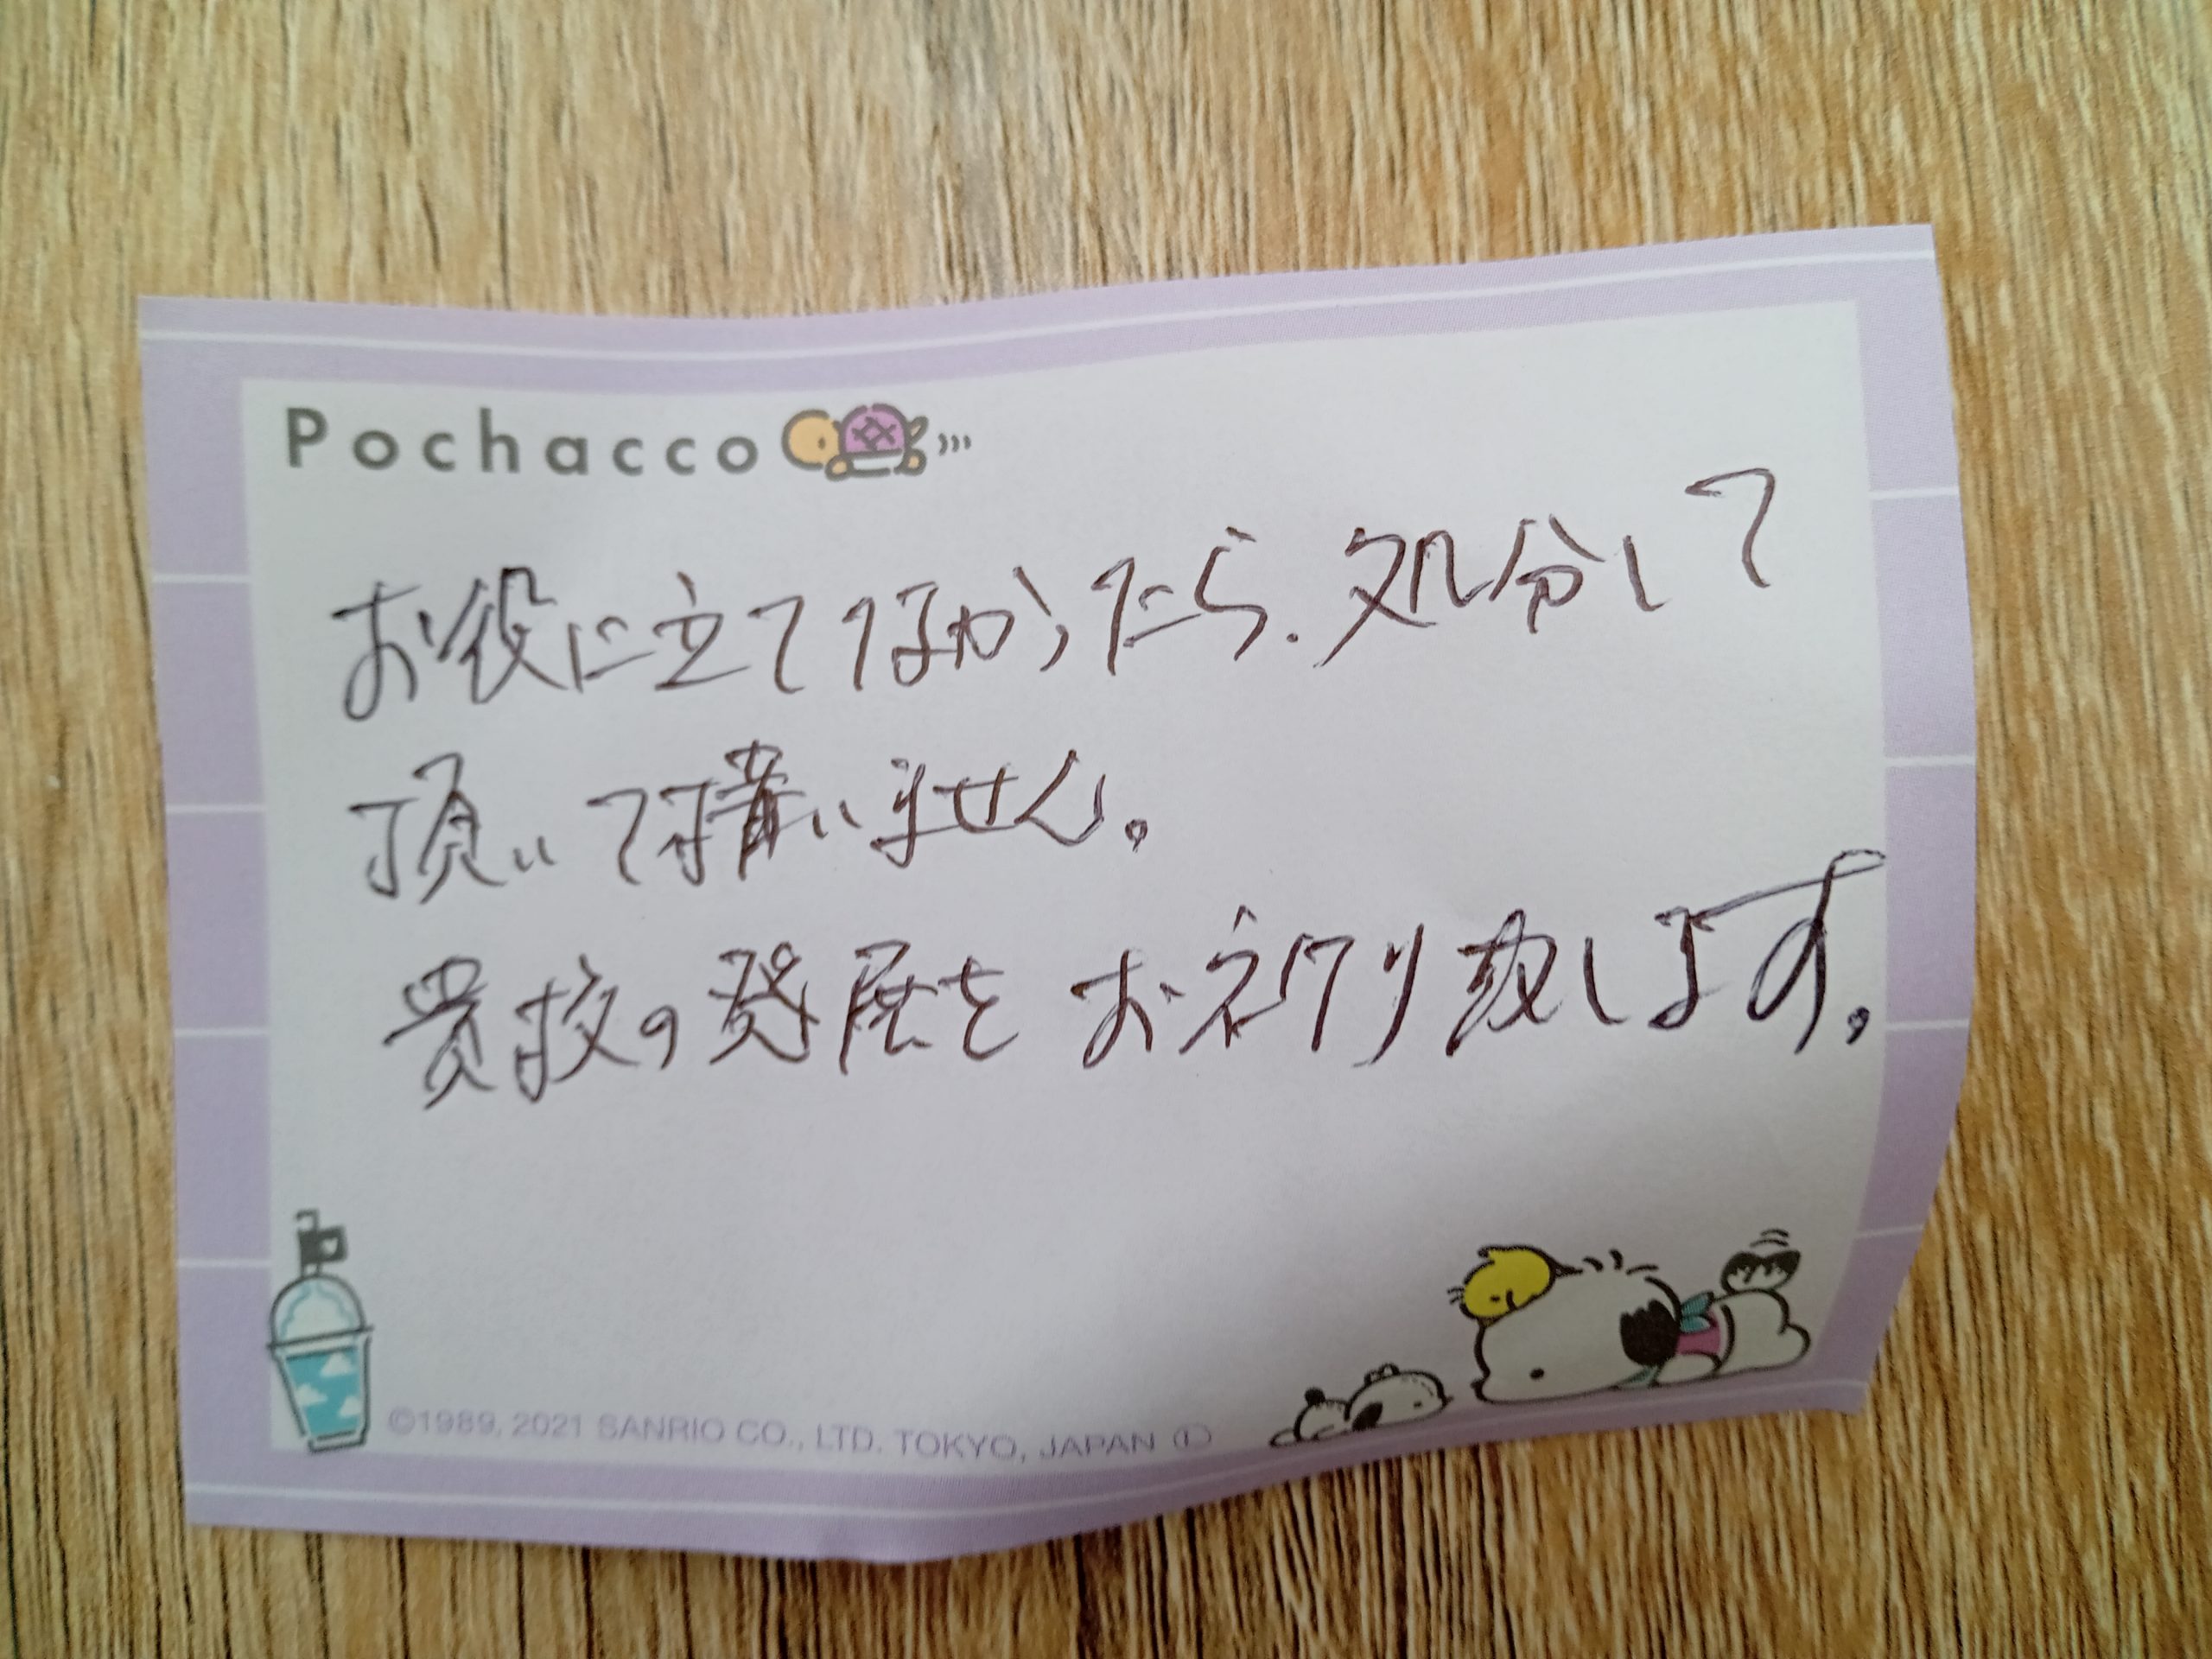 Pochacco
お役に立てなかったら、処分して
頂いて構いません。
貴校の発展をお祈り致します。
©1989, 2021 SANRIO CO., LTD. TOKYO, JAPAN (L)